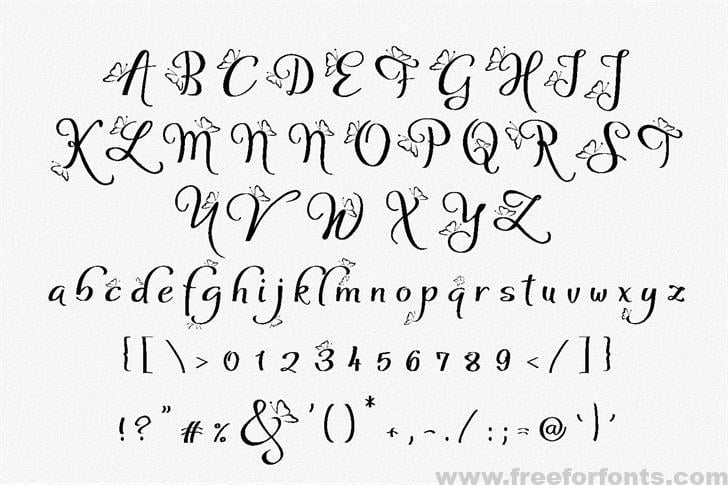 A B C D E F G H I J
K L M N N O P Q R S T
U V W X Y Z
a b c d e f g h i j k l m n o p q r s t u v w x y z
{ [ \ > 0 1 2 3 4 5 6 7 8 9 < / ] }
! ? " # % & ' ( ) * + , - . / : ; = @ ` | '
www.freeforfonts.com